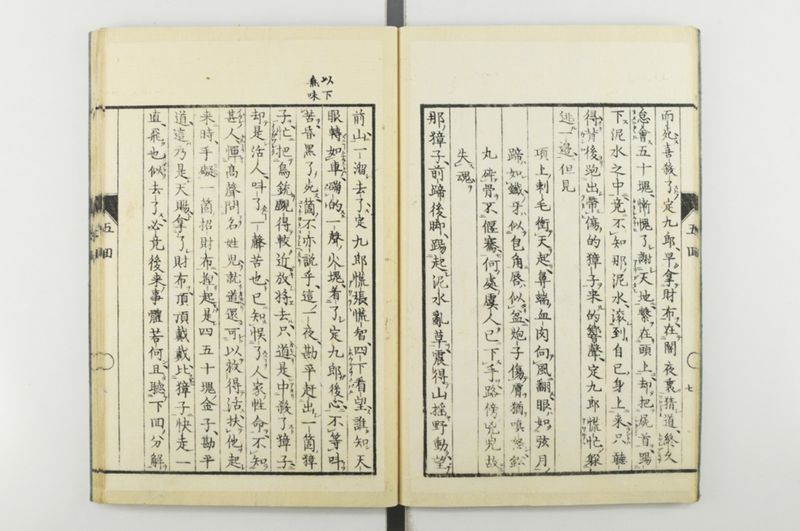 而死喜殺了定九郎早拿財布在闇夜裏猜道終久
怠會五十塊慚愧了謝天地繫在頭上却把屍首踢
下泥水之中竟不知那泥水滚到自己身上来只聽
得背後跑出帶傷的獐子来的響聲定九郎慌忙躱
逃一邊但見
項上刺毛衝天起鼻端血肉向風翻眼如弦月
蹄如鐵牙似包角唇似盆炮子傷膚猶嗔怒鉛
丸碎骨不偃蹇何處虞人已下手路傍兇兇故
失魂
那獐子前蹄後脚踢起泥水亂草震得山搖野動望
五回
七
以下
無味
前山一溜去了定九郎慌張慌智四下看望誰知天
眼轉如車嘣的一聲火塊着了定九郎後心不等叫
苦昏黑了死箇不亦説乎這一夜勘平赶出一箇獐
子忙把鳥銃覷得較近放將去只道是中殺了獐子
却是活人叫了一聲苦也已知悞了人家性命不知
甚人憚高聲問名姓児就道還可以救得活扶他起
来時手礙一箇招財布揑起是四五十塊金子勘平
道這乃是天賜拿了財布頂頂戴戴比獐子快走一
直飛也似去了必竟後来事體若何且聽下回分解
五回